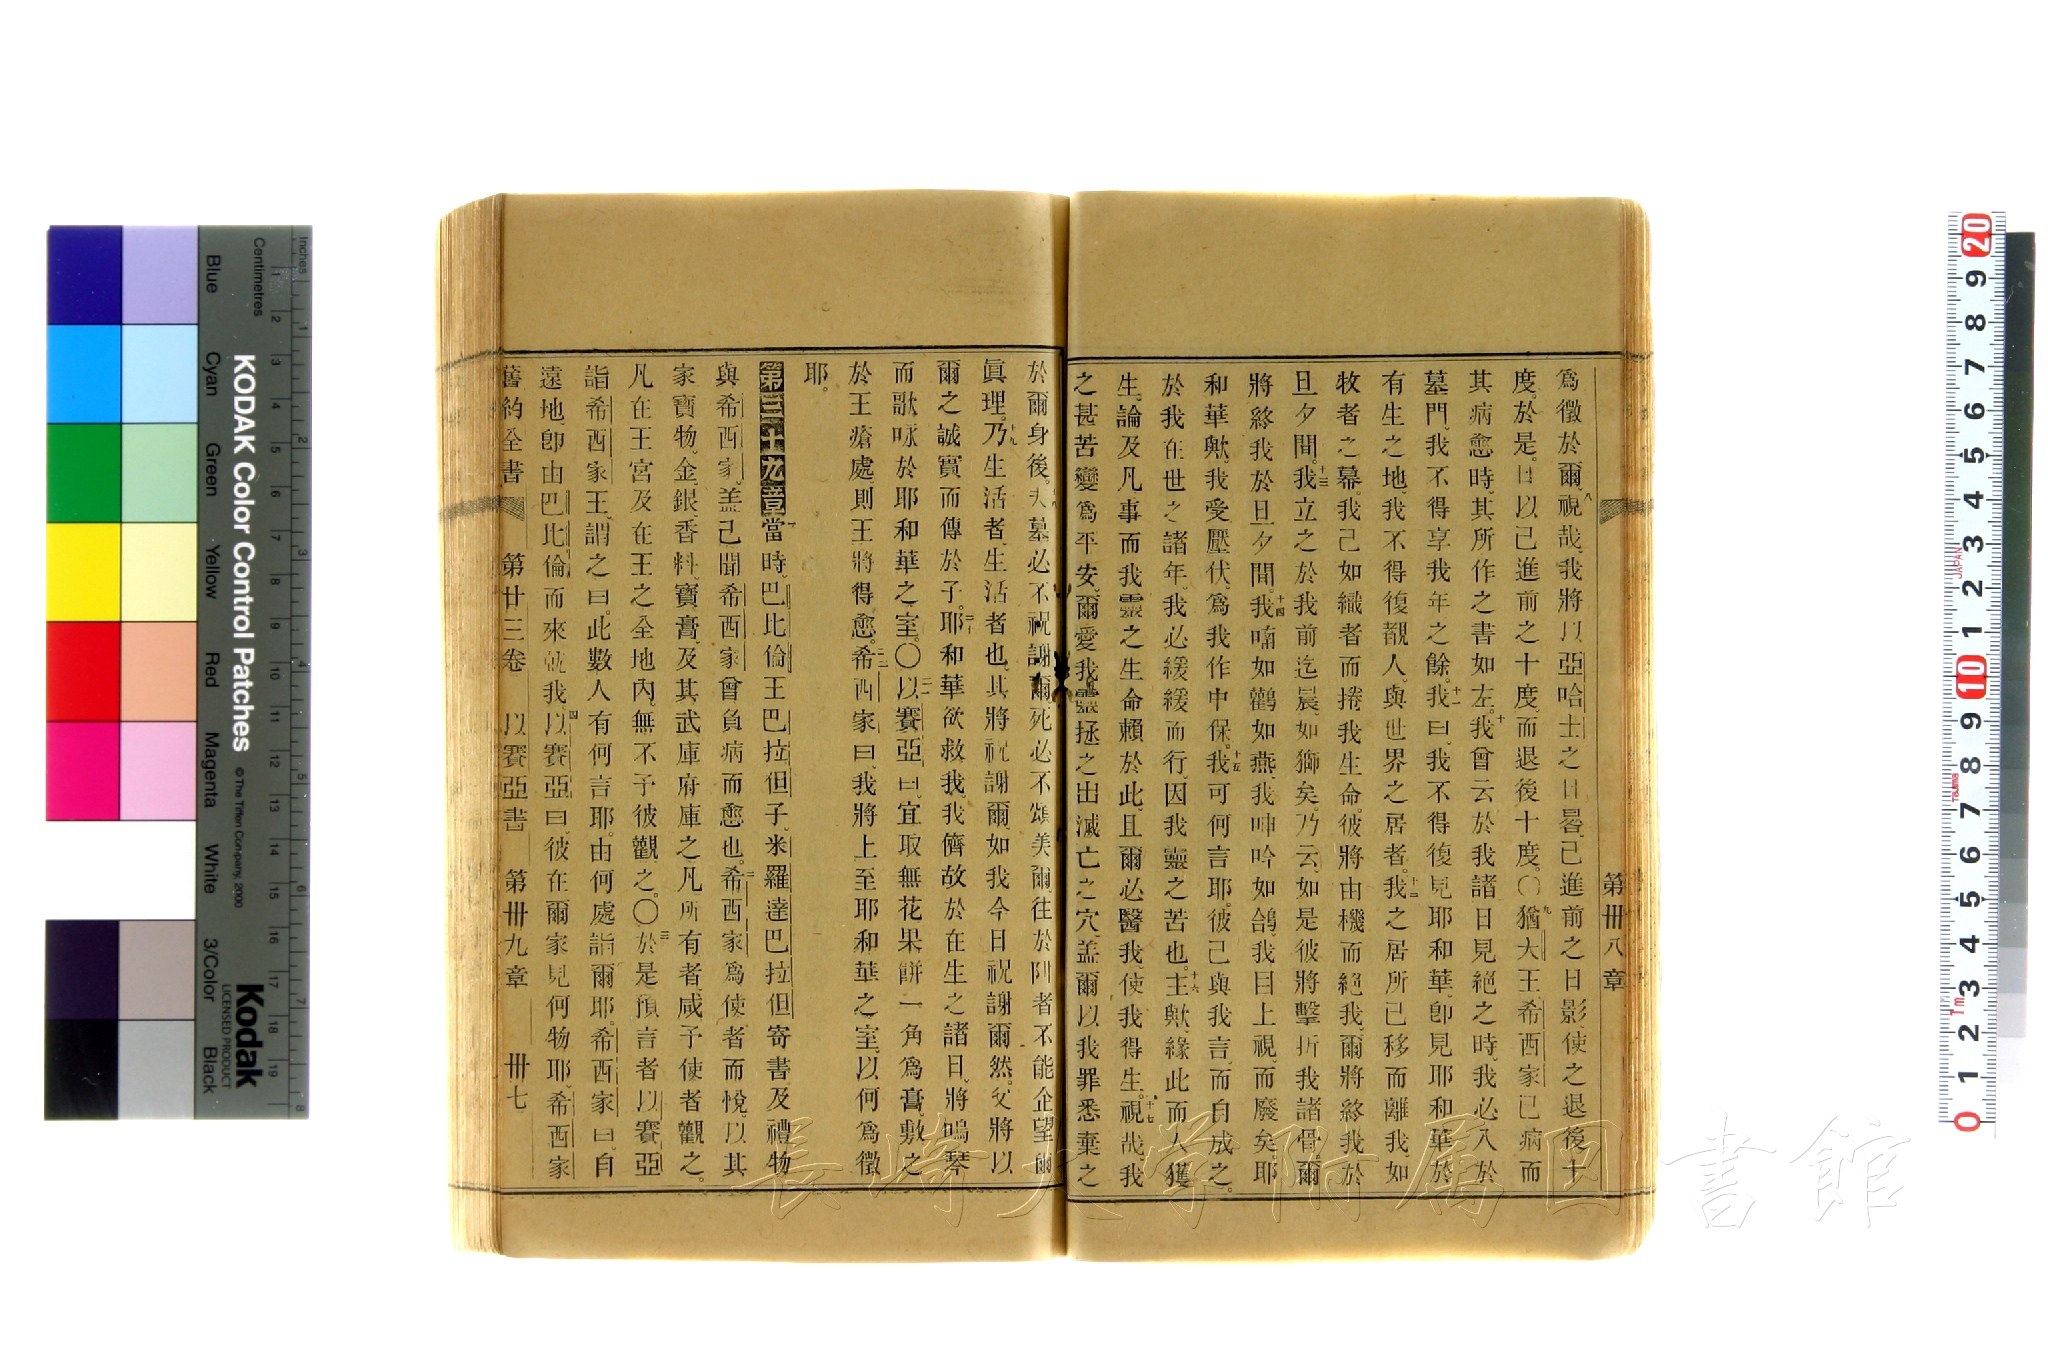 第卅八章
爲徵於爾、八視哉、我將以亞哈士之日晷、己進前之日影、使之退後十
度。於是日以己進前之十度、而退後十度。〇九猶大王希西家已病而
其病愈時、其所作之書如左。十我曾云、於我諸日見絕之時、我必入於
墓門、我不得享我年之餘。十一我曰、我不得復見耶和華、卽見耶和華於
有生之地、我不得復覩人、與世界之居者。十二我之居所已移而離我、如
牧者之幕。我己如織者而捲我生命。彼將由機而絕我、爾將終我於
旦夕間。十三我立之於我前迄晨、如獅矣、乃云、如是彼將擊折我諸骨。爾
將終我於旦夕間。十四我喃如鶴如燕、我呻吟如鴿、我目上視而廢矣。耶
和華歟、我受壓伏、爲我作中保。十五我可何言耶。彼己與我言、而自成之。
於我在世之諸年、我必緩緩而行、因我靈之苦也。十六主歟、緣此而人獲
生。論及凡事而我靈之生命賴於此、且爾必醫我、使我得生。十七視哉、我
之甚苦變爲平安、爾愛我靈拯之出滅亡之穴、盖爾以我罪悉棄之
於爾身後。夫墓必不祝謝爾、死必不頌美爾、往於阱者不能企望爾
眞理。十九乃生活者、生活者也、其將祝謝爾、如我今日祝謝爾然。父將以
爾之誠實而傳於子。二十耶和華欲救我、我儕故於在生之諸日、將鳴琴
而歌咏於耶和華之室。〇二一以賽亞曰、宜取無花果餅一角爲膏、敷之
於王瘡處、則王將得愈。二二希西家曰、我將上至耶和華之室、以何爲徵
耶。
第三十九章一當時、巴比倫王巴拉但子、米羅達巴拉但寄書及禮物
與希西家、盖己聞希西家曾負病而愈也。二希西家爲使者而悅、以其
家寶物、金、銀、香料、寶膏、及其武庫府庫之凡所有者、咸予使者觀之。
凡在王宮及在王之全地內、無不予彼觀之。〇三於是預言者以賽亞
詣希西家王、謂之曰、此數人有何言耶。由何處詣爾耶。希西家曰、自
遠地、卽由巴比倫而來就我。四以賽亞曰、彼在爾家見何物耶。希西家
舊約全書 第廿三卷 以賽亞書 第卅九章 卅七
KODAK Color Control Patches
© The Tiffen Company, 2000
Kodak
LICENSED PRODUCT
Inches
Centimetres
Blue
Cyan
Green
Yellow
Red
Magenta
White
3/Color
Black
JAPAN
Tajima
1m
長崎大学附属図書館